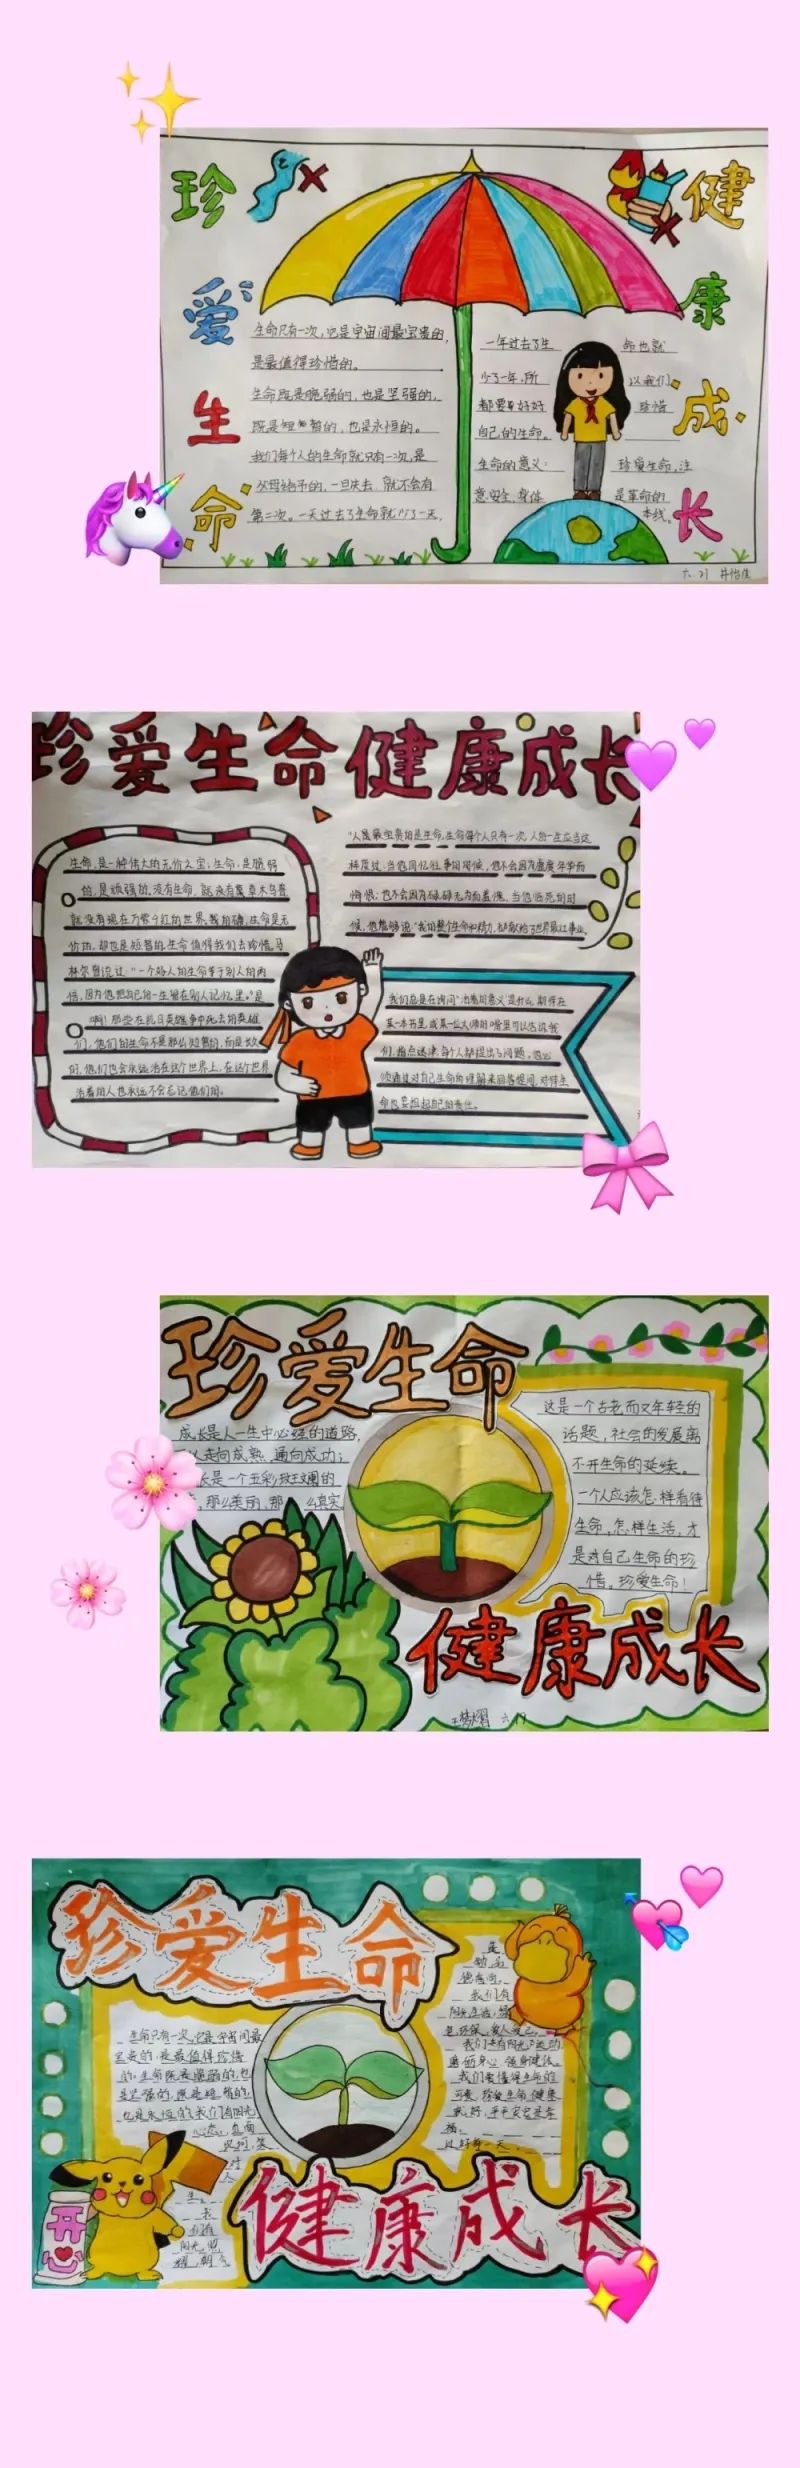 珍爱生命
健康成长
生命只有一次，它是宇宙间最宝贵的，
是最值得珍惜的。
生命既是脆弱的，也是坚强的，
既是短暂的，也是永恒的。
我们每个人的生命就只有一次，是
父母给予的，一旦失去，就不会有
第二次。一天过去了生命就少了一天，
一年过去了生命也就
少了一年，所以我们
都要好好珍惜
自己的生命。
生命的意义：珍爱生命，注
意安全，身体是革命的
本钱。
六.21
珍爱生命健康成长
生命，是一种伟大的无价之宝；生命，是脆弱
的，是顽强的，没有生命，就没有
就没有现在万紫千红的世界。
价的，却也是短暂的生命值得我们去珍惜。
"一个好人的生命等于别人的两
倍，因为他把自己的一生留在别人记忆里。"是
啊！那些在抗日英雄争中死去的英雄
们，他们的生命不是那么短暂的，而是永久
的，他们也会永远活在这个世界上，在这个世界
活着的人也永远不会忘记他们的。
"人最最宝贵的是生命，生命每个人只有一次，人的一生应当这
样度过：当他回忆往事的时候，他不会因为虚度年华而
悔恨；也不会因为碌碌无为而羞愧，当他临死的时
候，他能够说："我的整个生命和精力，都献给了世界最壮事业。
我们总是在询问"活着的意义"是什么，期待在
某一本书里，或某一位大师的嘴里可以告诉我
们，指点迷津，每个人都提出了问题，
须通过对自己生命的理解来回答提问，对待生
命也要担起自己的责任。
珍爱生命
成长是人一生中必经的道路，
走向成熟，通向成功；
长是一个五彩斑斓的
，那么美丽，那么真实
这是一个古老而又年轻的
话题，社会的发展离
不开生命的延续。
一个人应该怎样看待
生命，怎样生活，才
是对自己生命的珍
惜。珍爱生命！
健康成长
六.19
珍爱生命
生命只有一次，它是宇宙间最
宝贵的，是最值得珍惜
的。生命既是脆弱的，也
是坚强的，既是短暂的，
也是永恒的。我们有阳光
心态，直面
坎坷，笑
对
人
生。
我
们有
阳光，照
耀，朝气
是
我们有
我们去有阳光运动，
我们要懂得生命的
可贵，珍爱生命，健康
成长，平平安安是幸
福。
过好每一天。
开心
健康成长